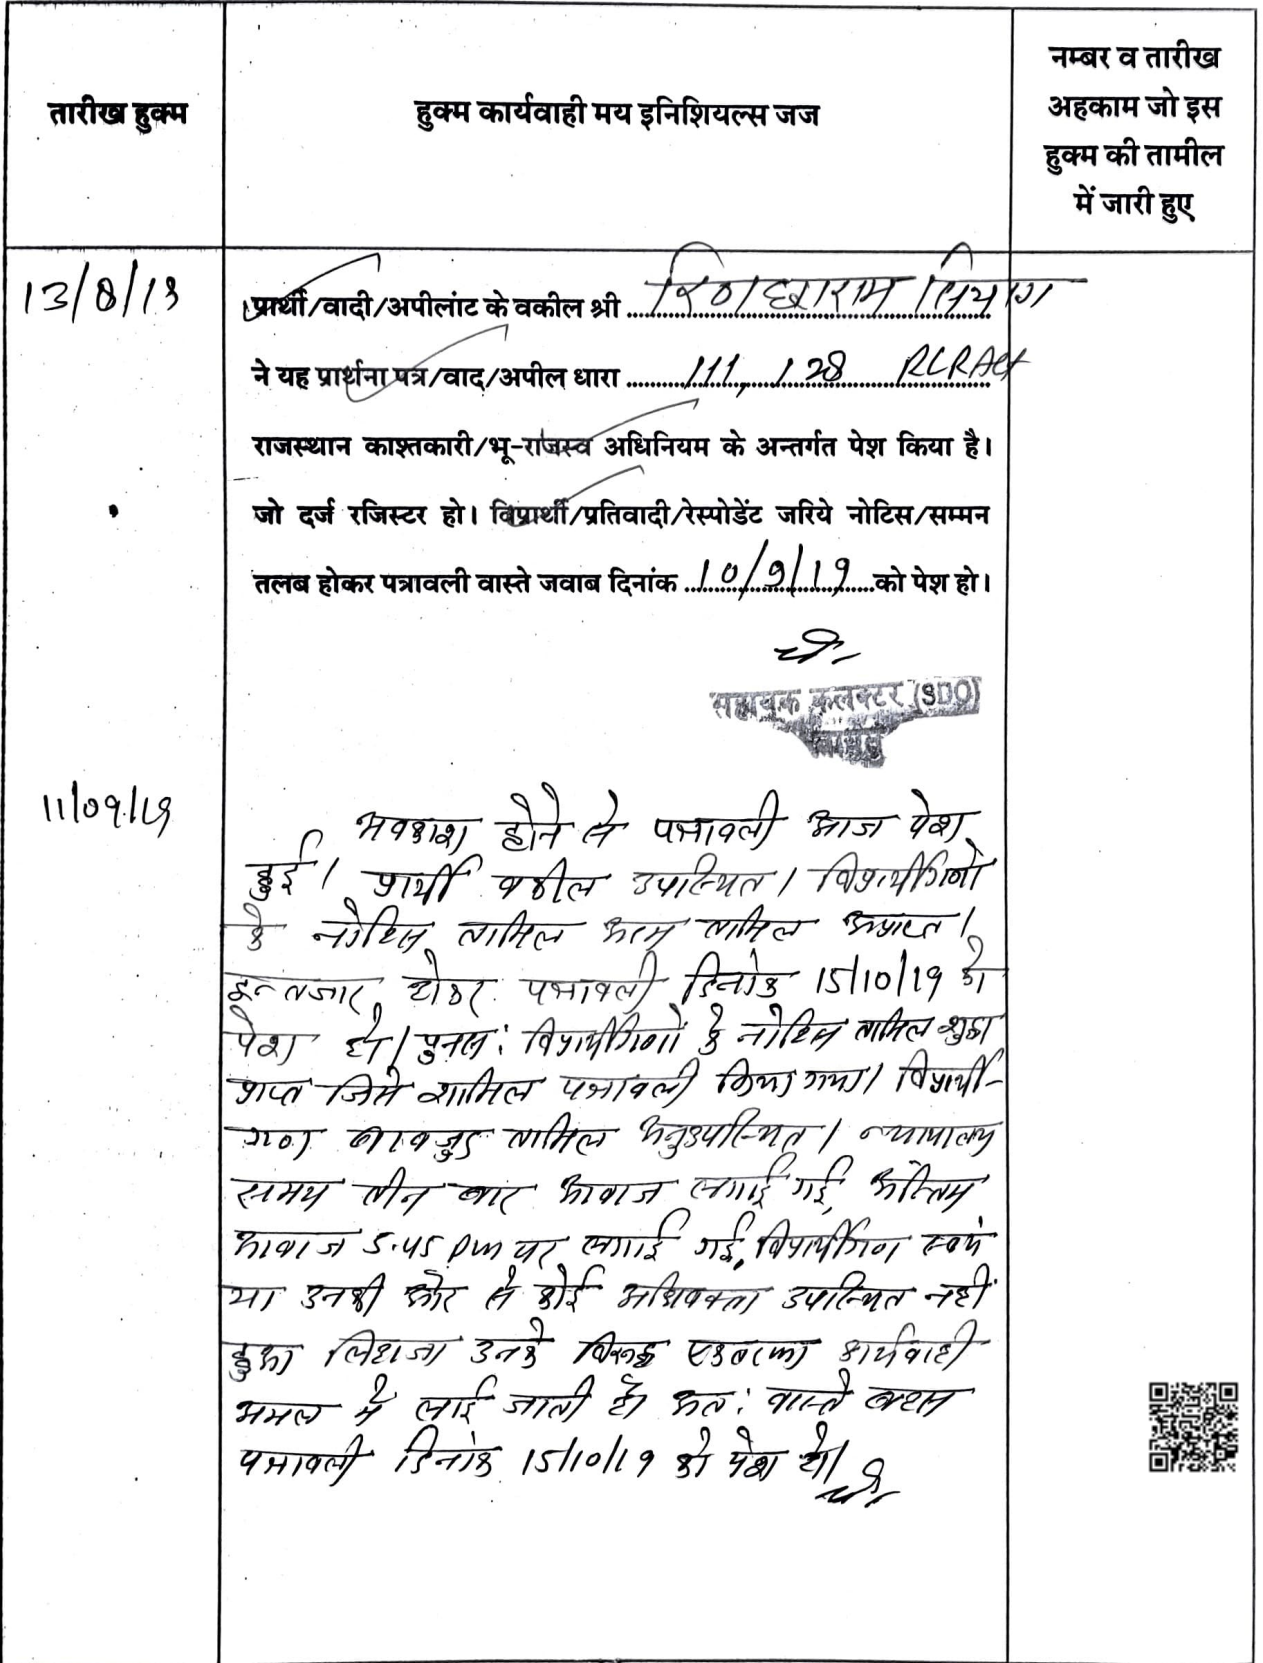 तारीख हुक्म
हुक्म कार्यवाही मय इनिशियल्स जज
नम्बर व तारीख
अहकाम जो इस
हुक्म की तामील
में जारी हुए
13/8/19
प्रार्थी/वादी/अपीलांट के वकील श्री ............ सियाग
ने यह प्रार्थना पत्र/वाद/अपील धारा ......111, 128 RLR Act
राजस्थान काश्तकारी/भू-राजस्व अधिनियम के अन्तर्गत पेश किया है।
जो दर्ज रजिस्टर हो। विप्रार्थी/प्रतिवादी/रेस्पोडेंट जरिये नोटिस/सम्मन
तलब होकर पत्रावली वास्ते जवाब दिनांक ...10/9/19...को पेश हो।
सहायक कलक्टर (SDO)
11/09/19
अवकाश होने से पत्रावली आज पेश
हुई। प्रार्थी वकील उपस्थित। विप्रार्थीगणो
के नोटिस तामिल अदम तामिल अप्राप्त।
इन्तजार होकर पत्रावली दिनांक 15/10/19 को
पेश हो। पुनश्च: विप्रार्थीगणो के नोटिस तामिल शुदा
प्राप्त जिसे शामिल पत्रावली किया गया। विप्रार्थी-
गण बावजुद तामिल अनुउपस्थित। न्यायालय
समय तीन बार आवाज लगाई गई, अंतिम
आवाज 5.45 pm पर लगाई गई, विप्रार्थीगण स्वयं
या उनकी और से कोई अधिवक्ता उपस्थित नहीं
हुआ लिहाजा उनके विरूद्ध एकतरफा कार्यवाही
अमल में लाई जाती है। अत: वास्ते बहस
पत्रावली दिनांक 15/10/19 को पेश हो।